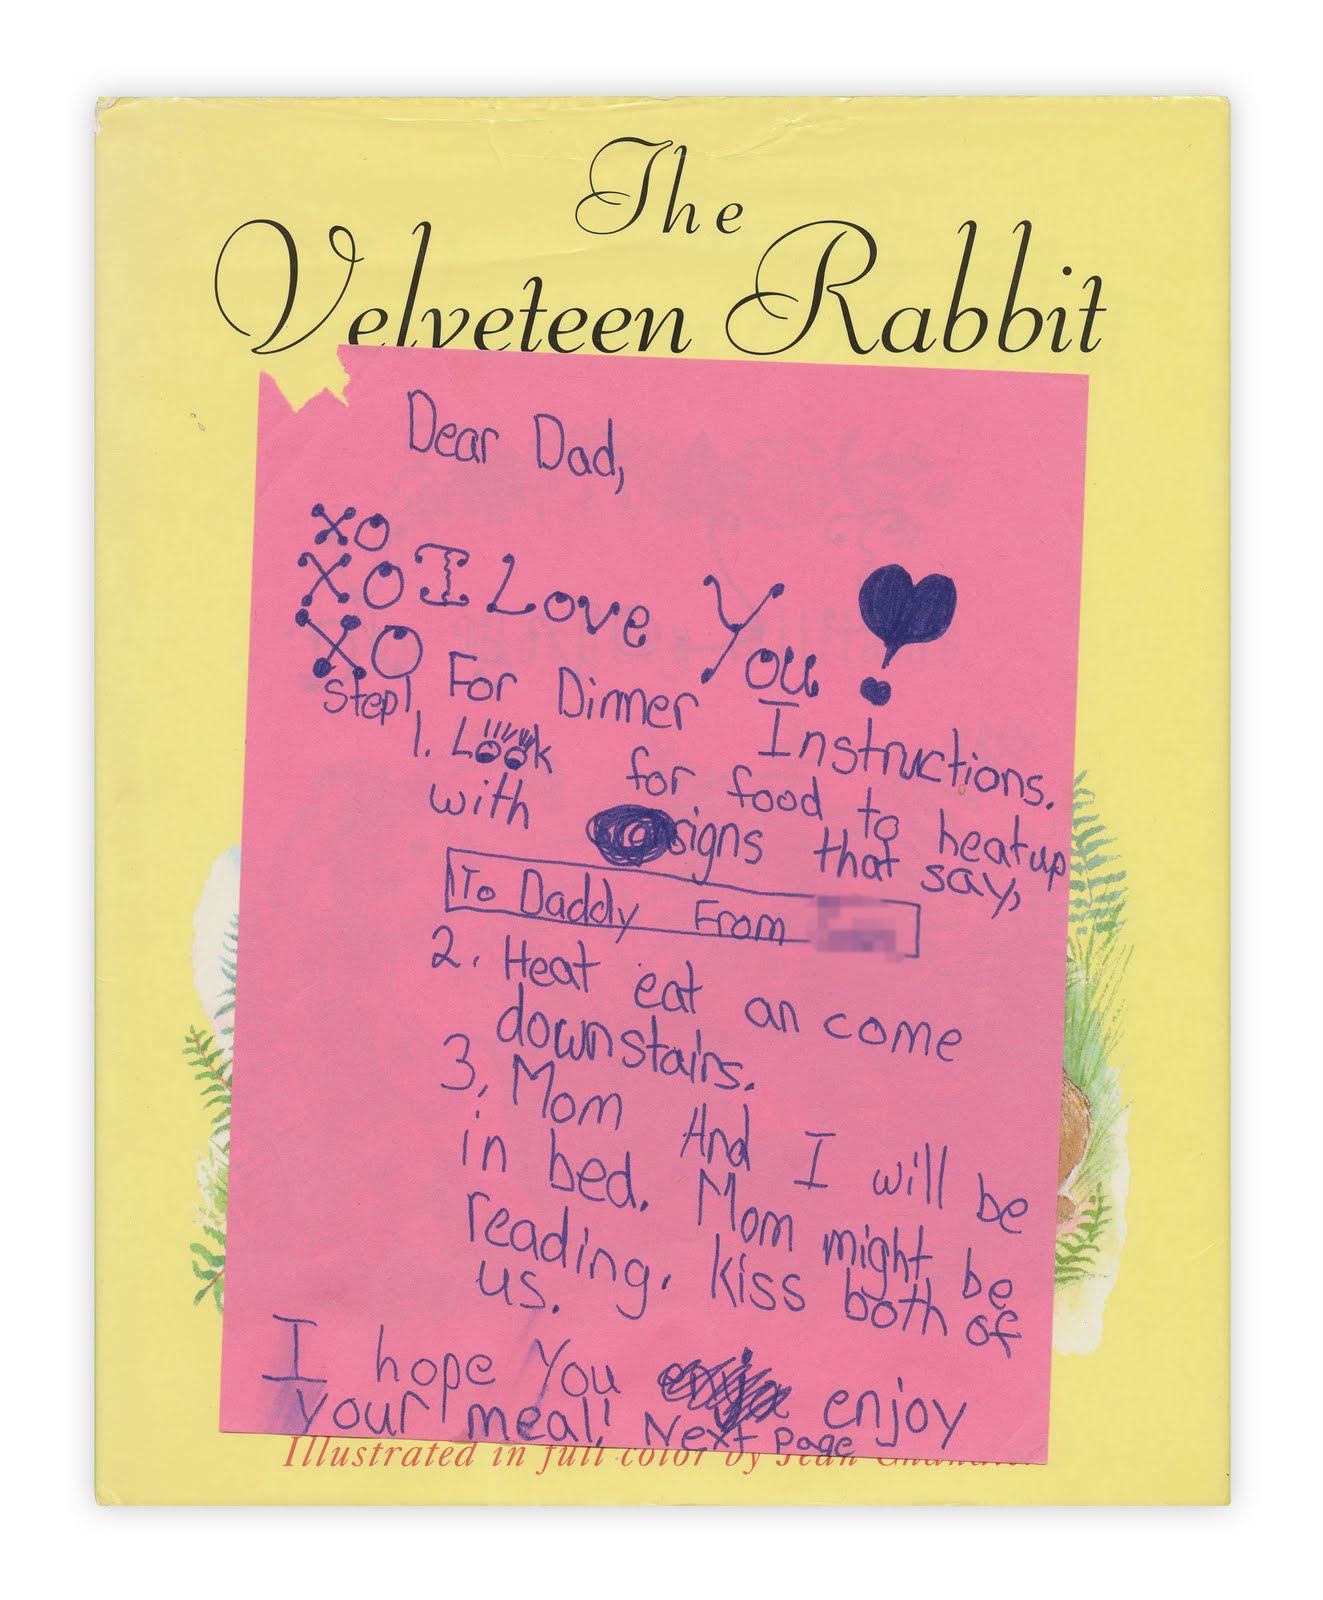 The
Velveteen Rabbit
Dear Dad,
XO
XO I Love You!
XO
Step 1 For Dinner Instructions.
1. Look for food to heatup
with signs that say,
To Daddy From
2. Heat eat an come
downstairs.
3. Mom And I will be
in bed. Mom might be
reading. Kiss both of
us.
I hope You enjoy
your meal! Next page
Illustrated in full color by Jean